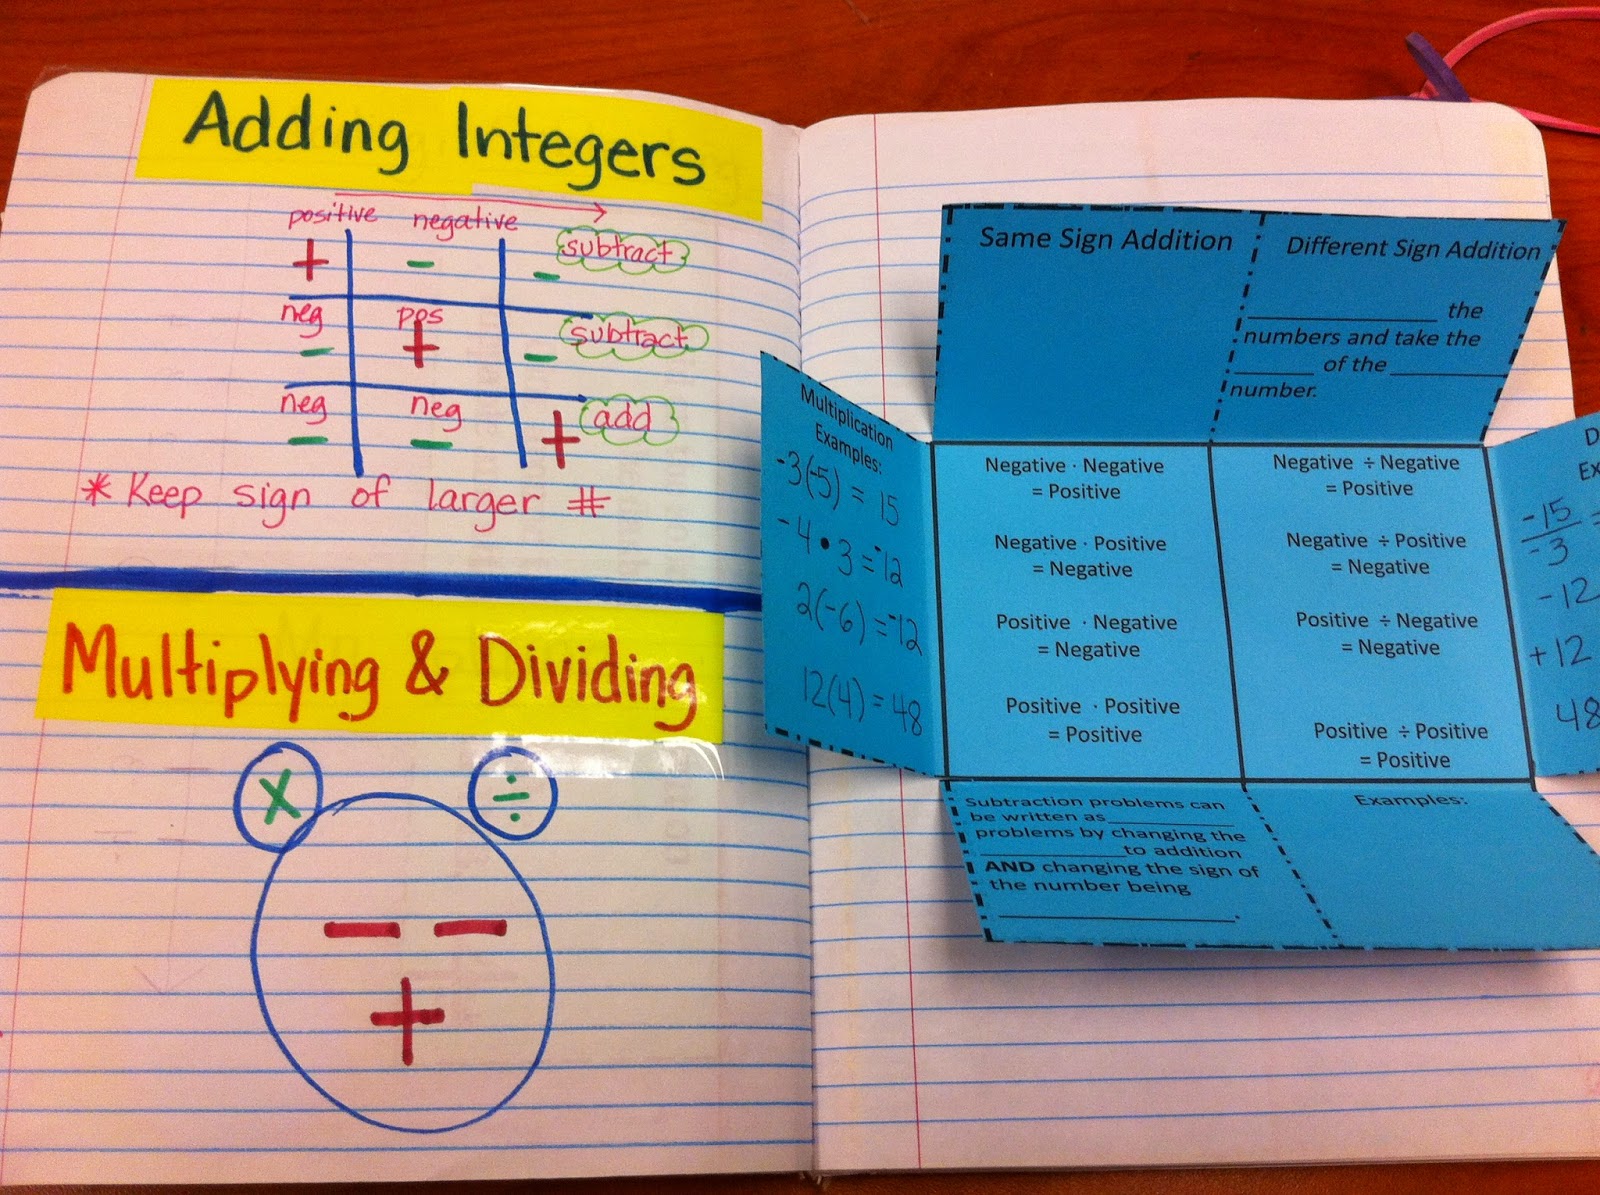 Adding Integers
positive negative
+ - - subtract
neg pos
- + - subtract
neg neg
- - + add
* Keep sign of larger #
Multiplying & Dividing
x ÷
- -
+
Same Sign Addition
Different Sign Addition
_______________ the
numbers and take the
_______ of the _________
number.
Multiplication
Examples:
-3(-5) = 15
-4 • 3 = -12
2(-6) = -12
12(4) = 48
Negative · Negative
= Positive
Negative · Positive
= Negative
Positive · Negative
= Negative
Positive · Positive
= Positive
Negative ÷ Negative
= Positive
Negative ÷ Positive
= Negative
Positive ÷ Negative
= Negative
Positive ÷ Positive
= Positive
-15
-3 =
-12
+12
48
Subtraction problems can
be written as ____________
problems by changing the
______________ to addition
AND changing the sign of
the number being
______________________.
Examples: